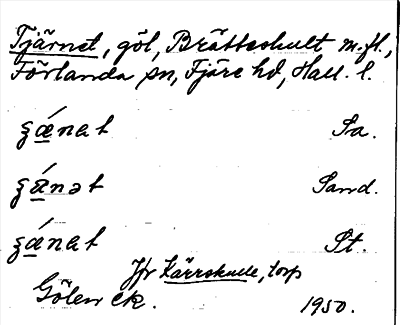 Tjärnet, göl, Brätteskult m.fl.,
Förlanda sn, Fjäre hd, Hall. l.
ʒǽnat Sa.
ʒánət Sand.
ʒǽnat St.
Jfr Kärrskulle, torp
Gölen ek. 1950.